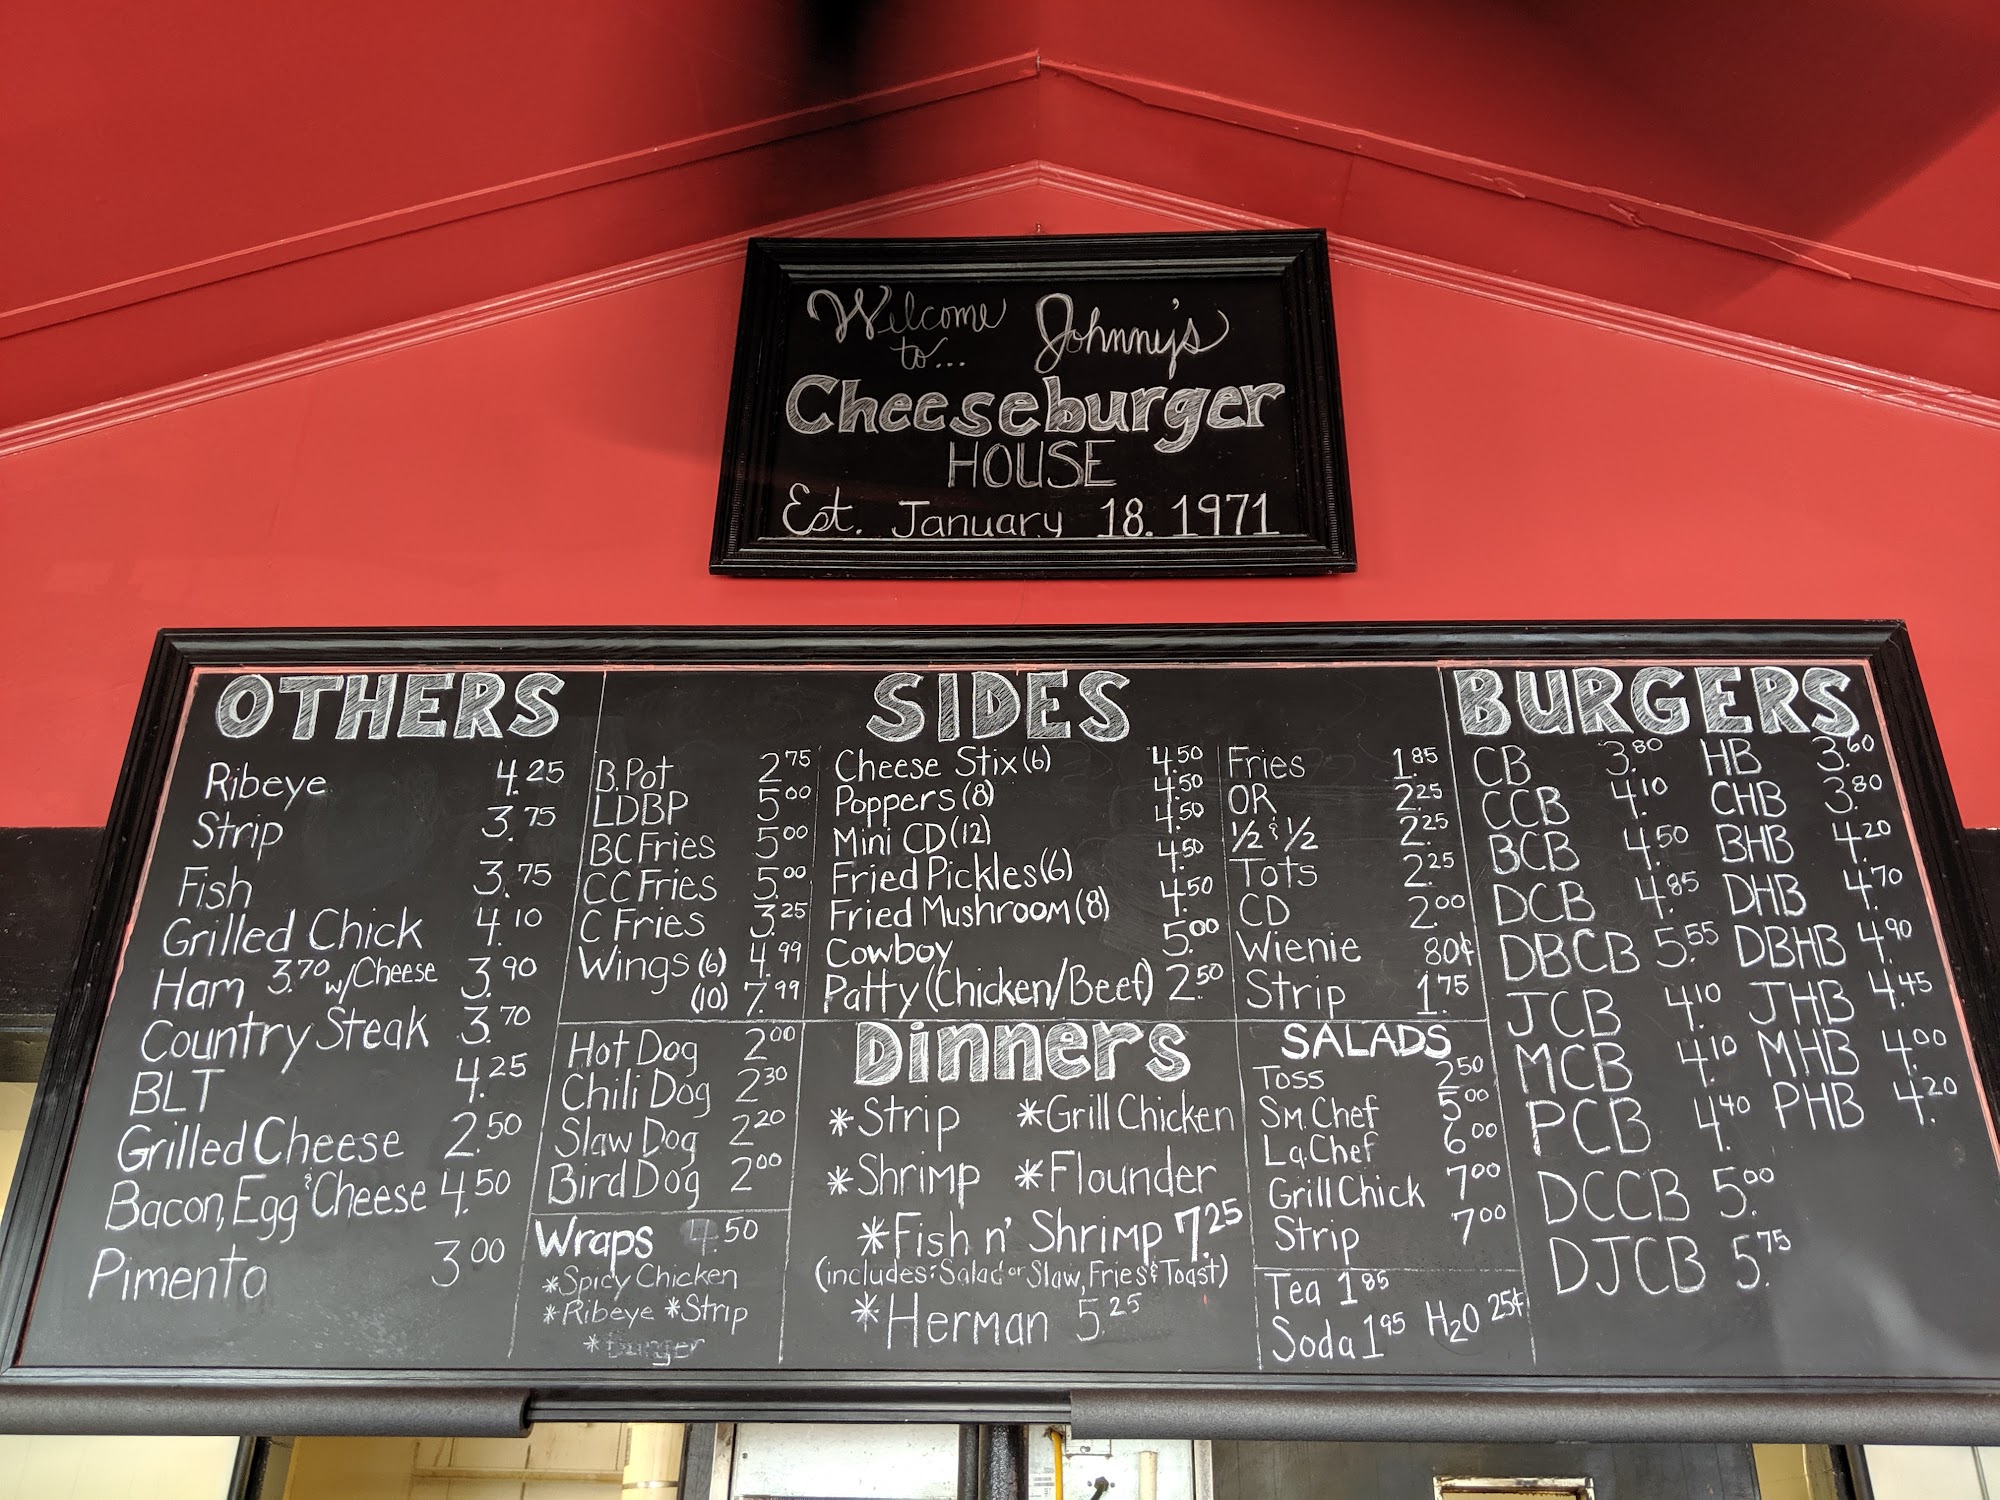 Welcome to... Johnny's
Cheeseburger
HOUSE
Est. January 18. 1971
OTHERS
Ribeye 4.25
Strip 3.75
Fish 3.75
Grilled Chick 4.10
Ham 3.70 w/Cheese 3.90
Country Steak 3.70
BLT 4.25
Grilled Cheese 2.50
Bacon, Egg & Cheese 4.50
Pimento 3.00
SIDES
B.Pot 2.75
LDBP 5.00
BC Fries 5.00
CC Fries 5.00
C Fries 3.25
Wings (6) 4.99
(10) 7.99
Cheese Stix (6) 4.50
Poppers (8) 4.50
Mini CD (12) 4.50
Fried Pickles (6) 4.50
Fried Mushroom (8) 4.50
Cowboy 5.00
Patty (Chicken/Beef) 2.50
Fries 1.85
OR 2.25
1/2 & 1/2 2.25
Tots 2.25
CD 2.00
Wienie 80¢
Strip 1.75
Hot Dog 2.00
Chili Dog 2.30
Slaw Dog 2.20
Bird Dog 2.00
Wraps 4.50
*Spicy Chicken
*Ribeye *Strip
*Burger
Dinners
*Strip *Grill Chicken
*Shrimp *Flounder
*Fish n' Shrimp 7.25
(includes: Salad or Slaw, Fries & Toast)
*Herman 5.25
SALADS
Toss 2.50
Sm. Chef 5.00
Lg. Chef 6.00
Grill Chick 7.00
Strip 7.00
Tea 1.85
Soda 1.95 H2O 25¢
BURGERS
CB 3.80 HB 3.60
CCB 4.10 CHB 3.80
BCB 4.50 BHB 4.20
DCB 4.85 DHB 4.70
DBCB 5.55 DBHB 4.90
JCB 4.10 JHB 4.45
MCB 4.10 MHB 4.00
PCB 4.40 PHB 4.20
DCCB 5.00
DJCB 5.75